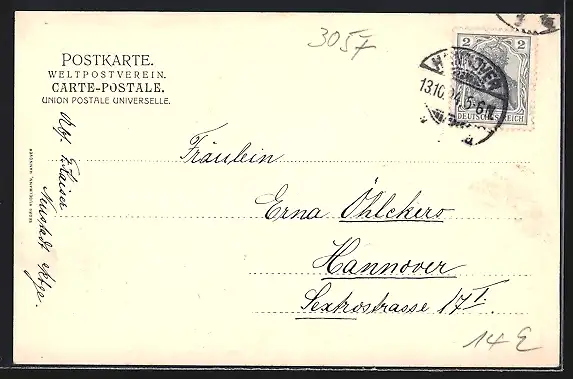 3057
POSTKARTE.
WELTPOSTVEREIN.
CARTE-POSTALE.
UNION POSTALE UNIVERSELLE.
2 2
HANNOVER
13.10.04.5-6N.
a
DEUTSCHES REICH
Fräulein
Erna Öhlckers
Hannover
Sextrostrasse 17 I.
Abs. E. Kaiser
Neustadt
14 E